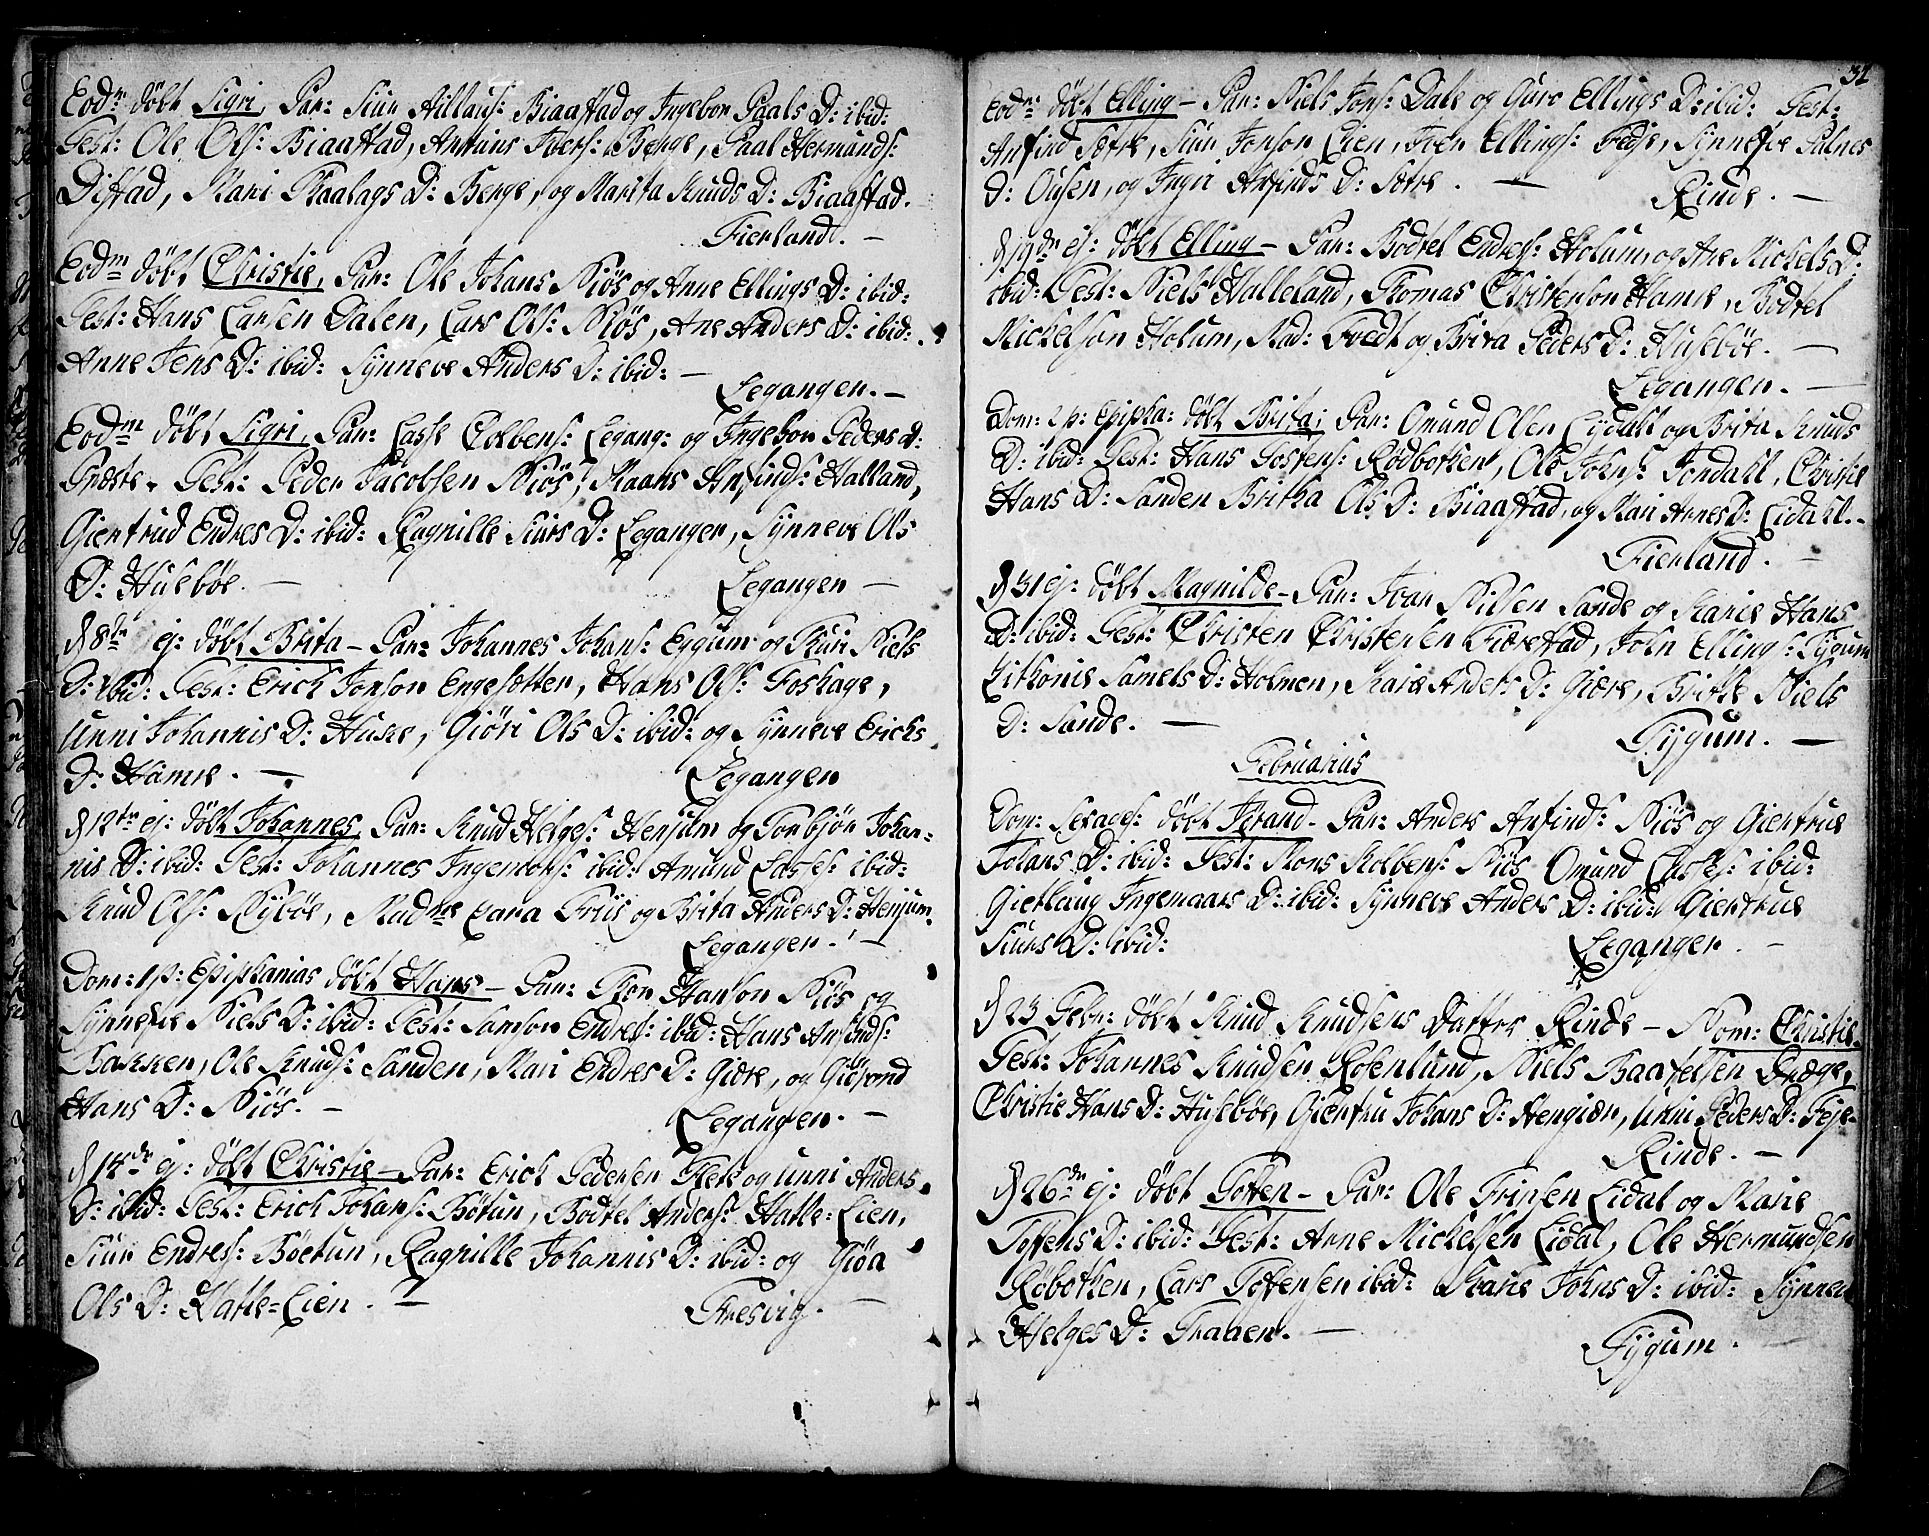 Eodm döbt Sigri, Par: Siur Aillaufs: Biaastad og Ingebor Paals D: ibid:
Test: Ole Ols: Biaastad, Anfins Ivers: Berge, Paal Hermunds:
Distad, Mari Maalags D: Berge, og Marita Knuds D: Biaastad.
Fierland. –
Eodm döbt Christie, Par: Ole Johans Niös og Anne Ellings D: ibid:
Test: Hans Larsen Dalen, Lars Ols: Niös, Ane Anders D: ibid:
Anne Jens D: ibid: Synneve Anders D: ibid: –
Leganger. –
Eodm döbt Sigri, Par: Lasse Colbens: Legang: og Ingebor Peders D:
Test: Peder Jacobsen Niös, Maans Anfinds: Halland,
Giertrud Endres D: ibid: Ragnille Siurs D: Leganger, Synneve Ols
D: Husebøe. –
Leganger –
d 8de ej: döbt Brita – Par: Johannes Johans: Eggum og Kari Niels
D: ibid: Test: Erich Jonson Engesætter, Hans Ols: Foshage,
Unni Johannis D: Husee, Giöri Ols D: ibid: og Synneve Erichs
D: Hamre. –
Leganger
d 12te ej: döbt Johannes, Par: Knud Helges: Henjum og Torbjör Johan-
nis D: ibid: Test: Johannes Ingemars: ibid: Amund Lasses: ibid:
Knud Ols: Nybøe, Madme Lara Friis og Brita Anders D: Henjum.
Leganger. –
Dom: 1 p: Epiphanias döbt Hans – Par: Mon Hanson Niös og
Synneve Niels D: ibid: Test: Samson Endres: ibid: Hans Anfinds:
Backen, Ole Knuds: Sanden, Mari Endres D: Giære, og Giörond
Hans D: Niös. –
Leganger. –
d 14de ej: döbt Christie – Par: Erich Pedersen Flete og Unni Anders
D: ibid: Test: Erich Johans: Bötun, Bodtel Anders: Hatle-Lien,
Siur Endres: Böetun, Ragnille Johannis D: ibid: og Giöa
Ols D: Hatle-Lien. –
Tresvig. –
34
Eodm: döbt Elling – Par: Niels Jons: Dale og Guro Ellings D: ibid: Test:
Anfind Sætre, Siur Jonson Lien, Iver Ellings: Fedje, Synneve Palnes
D: Ousen, og Ingri Anfinds D: Sætre. –
Rinde. –
d 19de ej: döbt Elling – Par: Bodtel Endres: Holum, og Ane Mickels D:
ibid: Test: Niels Halleland, Thomas Christenson Hamre, Bodtel
Mickelson Holum, Mad: Tvedt og Brita Peders D: Husebøe. –
Leganger. –
Dom: 2 p: Epipha: döbt Brita, Par: Omund Olsen Lydahl og Brita Knuds
D: ibid: Test: Hans Tostens: Rødbotten, Ole Johns: Jondahl, Christie
Hans D: Sanden Britha Ols D: Biaastad, og Mari Arnes D: Lidahl. –
Fierland. –
d 31 ej: döbt Magnilde – Par: Ivar Nilsen Sande og Marie Hans
D: ibid: Test: Christen Christensen Fiærestad, John Ellings: Tygum
Lithonie Samels D: Holmen, Marie Anders D: Giære, Britte Niels
D: Sande. –
Tygum. –
Februarius
Dom: Sexages: döbt Jörand – Par: Anders Anfinds: Niös og Giertrue
Johans D: ibid: Test: Mons Kolbens: Niös Omund Lasses: ibid:
Gietlaug Ingemaars D: ibid: Synneve Anders D: ibid: Giertrue
Siurs D: ibid:
Leganger. –
d 23 Febr: döbt Knud Knudsens Datter Rinde – Nom: Christie.
Test: Johannes Knudsen Rosenlund, Niels Baartelsen Græge,
Christie Hans D: Husebøe, Giertru Johans D: Hengiær, Unni Peders D: Feje –
Rinde. –
d 26de ej: döbt Tosten – Par: Ole Fripsen Lidal og Marie
Tostens D: ibid: Test: Arne Mickelsen Lidal, Ole Hermundsen
Røbotten, Lars Tostensen ibid: Marie Johns D: ibid: Synneve
Helges D: Traaen. –
Tygum. –